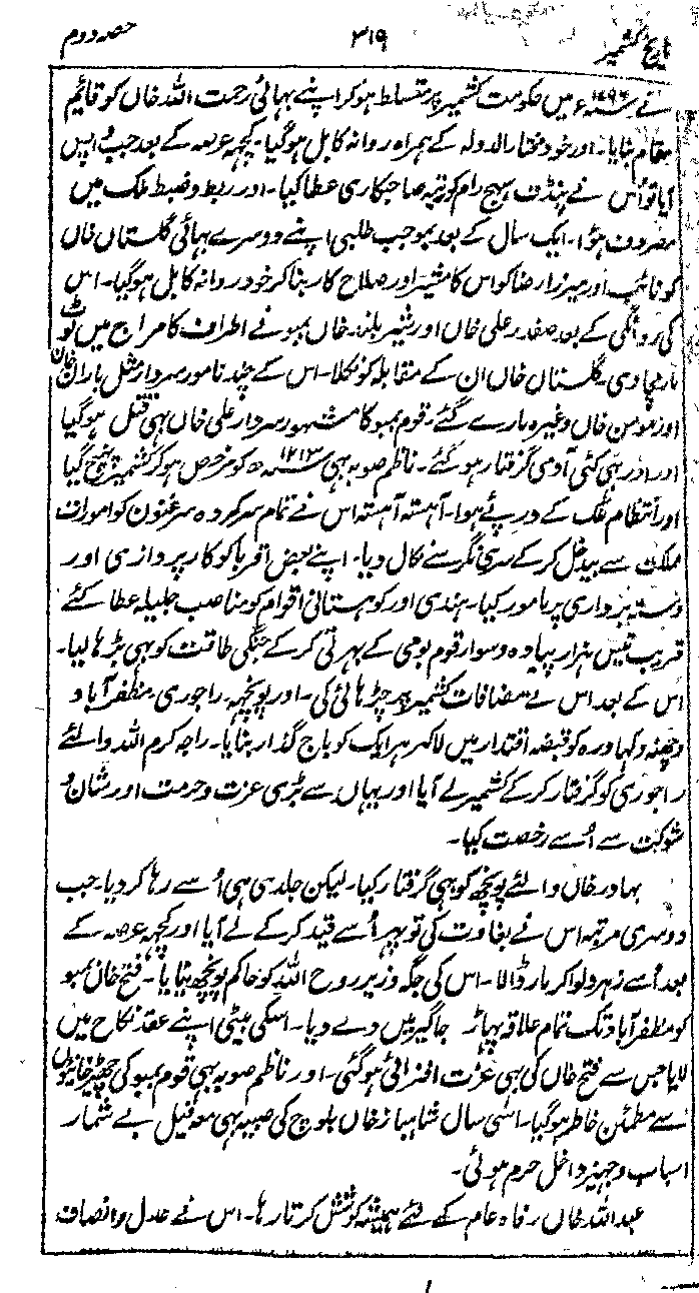 تاریخ کشمیر ۳۱۹ حصہ دوم
نے ۱۷۹۶ء میں حکومت کشمیر پر متسلط ہو کر اپنے بہائی رحمت اللہ خاں کو قائیم
مقام بنایا۔ اور خود مختار الدولہ کے ہمراہ روانہ کابل ہو گیا۔ کچہہ عرصہ کے بعد جب واپس
آیا تو اُس نے پنڈت سہج رام کو رتبہ صاحبکاری عطا کیا۔ اور ربط و ضبط ملک میں
مصروف ہؤا۔ ایک سال کے بعد بموجب طلبی اپنے دوسرے بہائی گلستاں خاں
کو نائب اور میرزا رضا کو اس کا مشیر اور صلاح کار بنا کر خود روانہ کابل ہو گیا۔ اس
کی روانگی کے بعد صفدر علی خاں اور شیر بلند خاں بمبو نے اطراف کامراج میں لوٹ
مار مچا دی۔ گلستاں خاں ان کے مقابلہ کو نکلا۔ اس کے چند نامور سردار مثل باران خان
اور مومن خاں وغیرہ مارے گئے۔ قوم بمبو کا مشہور سردار علی خاں بہی قتل ہو گیا
اور اور بہی کئی آدمی گرفتار ہو گئے۔ ناظم صوبہ بہی ۱۲۱۳ھ کو مرخص ہو کر کشمیر پہنچ گیا
اور انتظام ملک کے درپے ہوا۔ آہستہ آہستہ اس نے تمام سرکردہ سرغنوں کو امورات
مملکت سے بیدخل کر کے سری نگر سے نکال دیا۔ اپنے بعض اقربا کو کار پردازی اور
دستہ برداری پر مامور کیا۔ ہندی اور کوہستانی اقوام کو مناصب جلیلہ عطا کئے
قریب تیس ہزار پیادہ و سوار قوم بومی کے بہرتی کر کے جنگی طاقت کو بہی بڑہا لیا۔
اس کے بعد اس نے مضافات کشمیر پر چڑہائی کی۔ اور پونچہہ۔ راجوری۔ مظفر آباد
وچھنہ و کہاورہ کو قبضہ اقتدار میں لا کر ہر ایک کو باج گذار بنایا۔ راجہ کرم اللہ والئے
راجوری کو گرفتار کر کے کشمیر لے آیا اور یہاں سے بڑی عزت و حرمت اور شان و
شوکت سے اُسے رخصت کیا۔
بہادر خاں والئے پونچھ کو بہی گرفتار کیا۔ لیکن جلدی ہی اُسے رہا کر دیا۔ جب
دوسری مرتبہ اس نے بغاوت کی تو پہر اُسے قید کر کے لے آیا اور کچہہ عرصہ کے
بعد اُسے زہر دلوا کر مار ڈالا۔ اس کی جگہ وزیر روح اللہ کو حاکم پونچھ بنایا۔ فتح خان بمبو
کو مظفر آباد تک تمام علاقہ پہاڑ جاگیر میں دے دیا۔ اسکی بیٹی اپنے عقد نکاح میں
لایا جس سے فتح خاں کی بہی عزت افزائی ہو گئی۔ اور ناظم صوبہ بہی قوم بمبو کی چھیڑ خانیوں
سے مطمئن خاطر ہو گیا۔ اسی سال شاہباز خاں بلوچ کی صبیہ بہی معہ فیل بے شمار
اسباب و جہیز داخل حرم ہوئی۔
عبداللہ خاں رفاہ عام کے لئے ہمیشہ کوشش کرتا رہا۔ اس نے عدل و انصاف